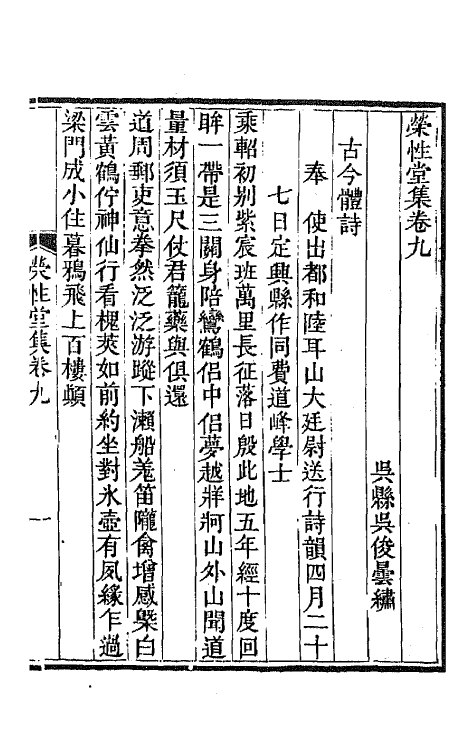 榮性堂集卷九
吳縣吳俊曇繡
古今體詩
奉　使出都和陸耳山大廷尉送行詩韻四月二十
七日定興縣作同費道峰學士
乘軺初别紫宸班萬里長征落日殷此地五年經十度回
眸一帶是三關身陪鸞鶴侶中侶夢越牂牁山外山聞道
量材須玉尺仗君籠藥與俱還
道周郵吏意拳然泛泛游蹤下瀨船羗笛隴禽增感槩白
雲黃鶴佇神仙行看槐莢如前約坐對氷壺有夙緣乍過
梁門成小住暮鴉飛上百樓顛
榮性堂集卷九
一